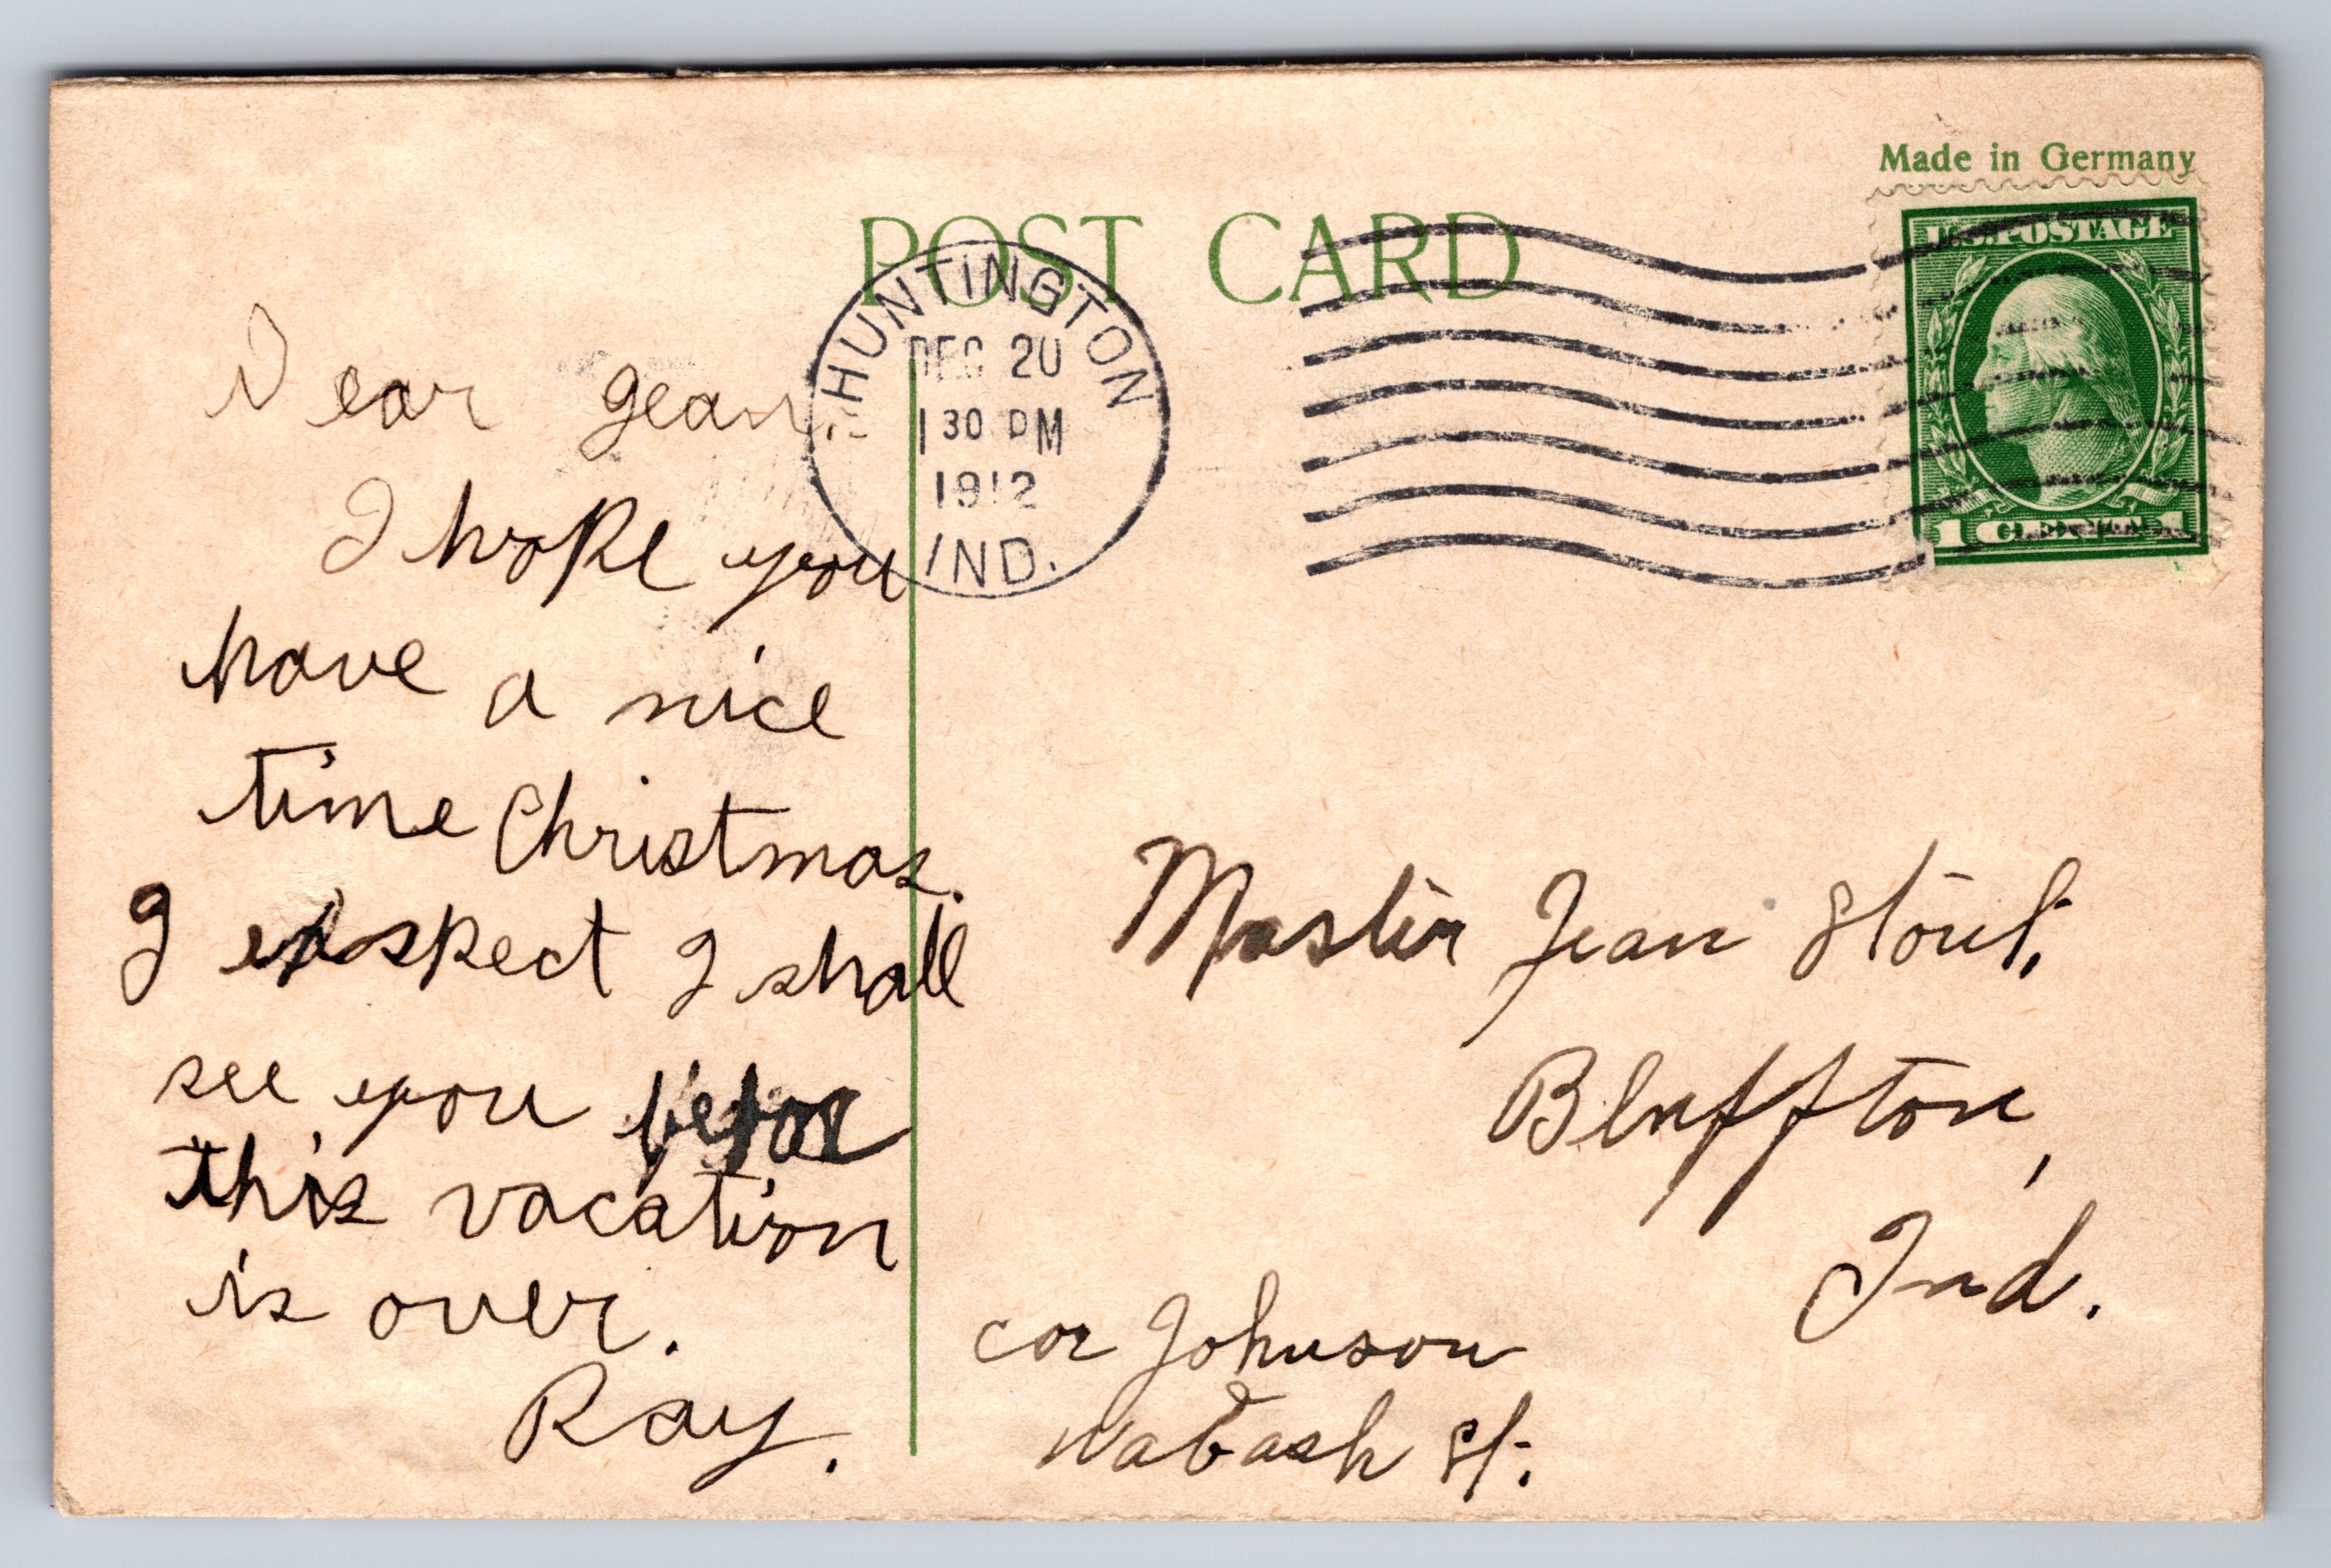 Made in Germany
POST CARD.
U.S. POSTAGE
1 CENT 1
HUNTINGTON
DEC 20
1 30 PM
1912
IND.
Dear Gean:-
I hope you
have a nice
time Christmas.
I exspect I shall
see you before
this vacation
is over.
Ray.
Master Jean Stout.
Bluffton,
Ind.
cor Johnson
Wabash St.